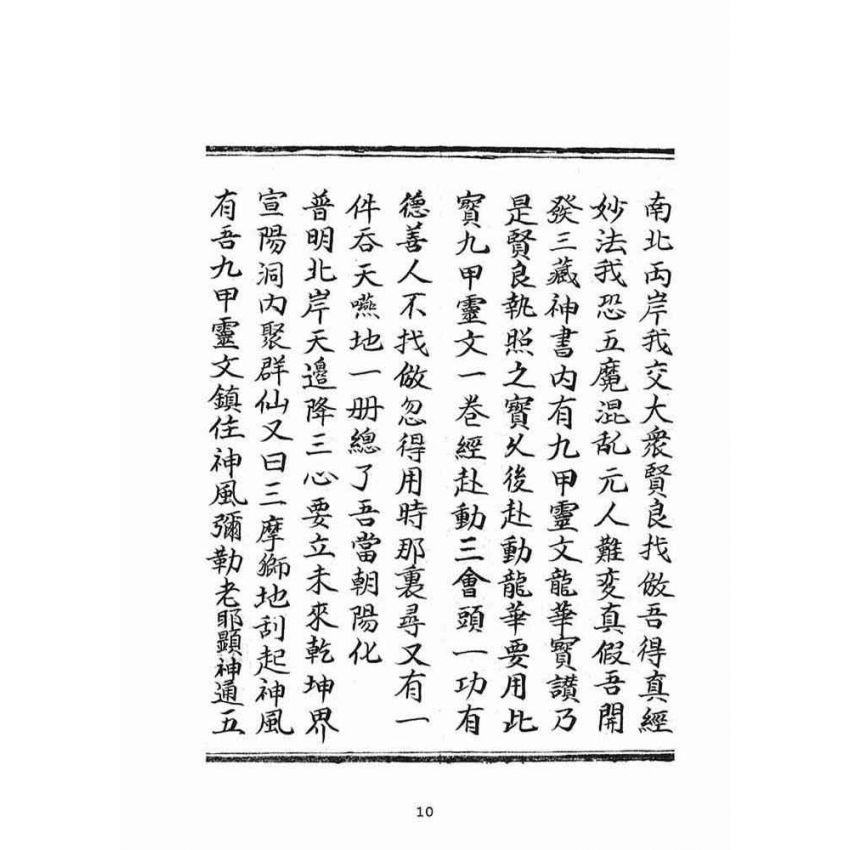 南北两岸我交大衆賢良找倣吾得真經
妙法我恐五魔混乱元人難変真假吾開
發三藏神書内有九甲靈文龍華寳讃乃
是賢良執照之寳乆後赴動龍華要用此
寳九甲靈文一巻經赴動三會頭一功有
德善人不找倣忽得用時那裏尋又有一
件吞天嚥地一册總了吾當朝陽化
普明北岸天邉降三心要立未來乾坤界
宣陽洞内聚群仙又曰三摩獅地刮起神風
有吾九甲靈文鎮住神風彌勒老耶顯神通五
10